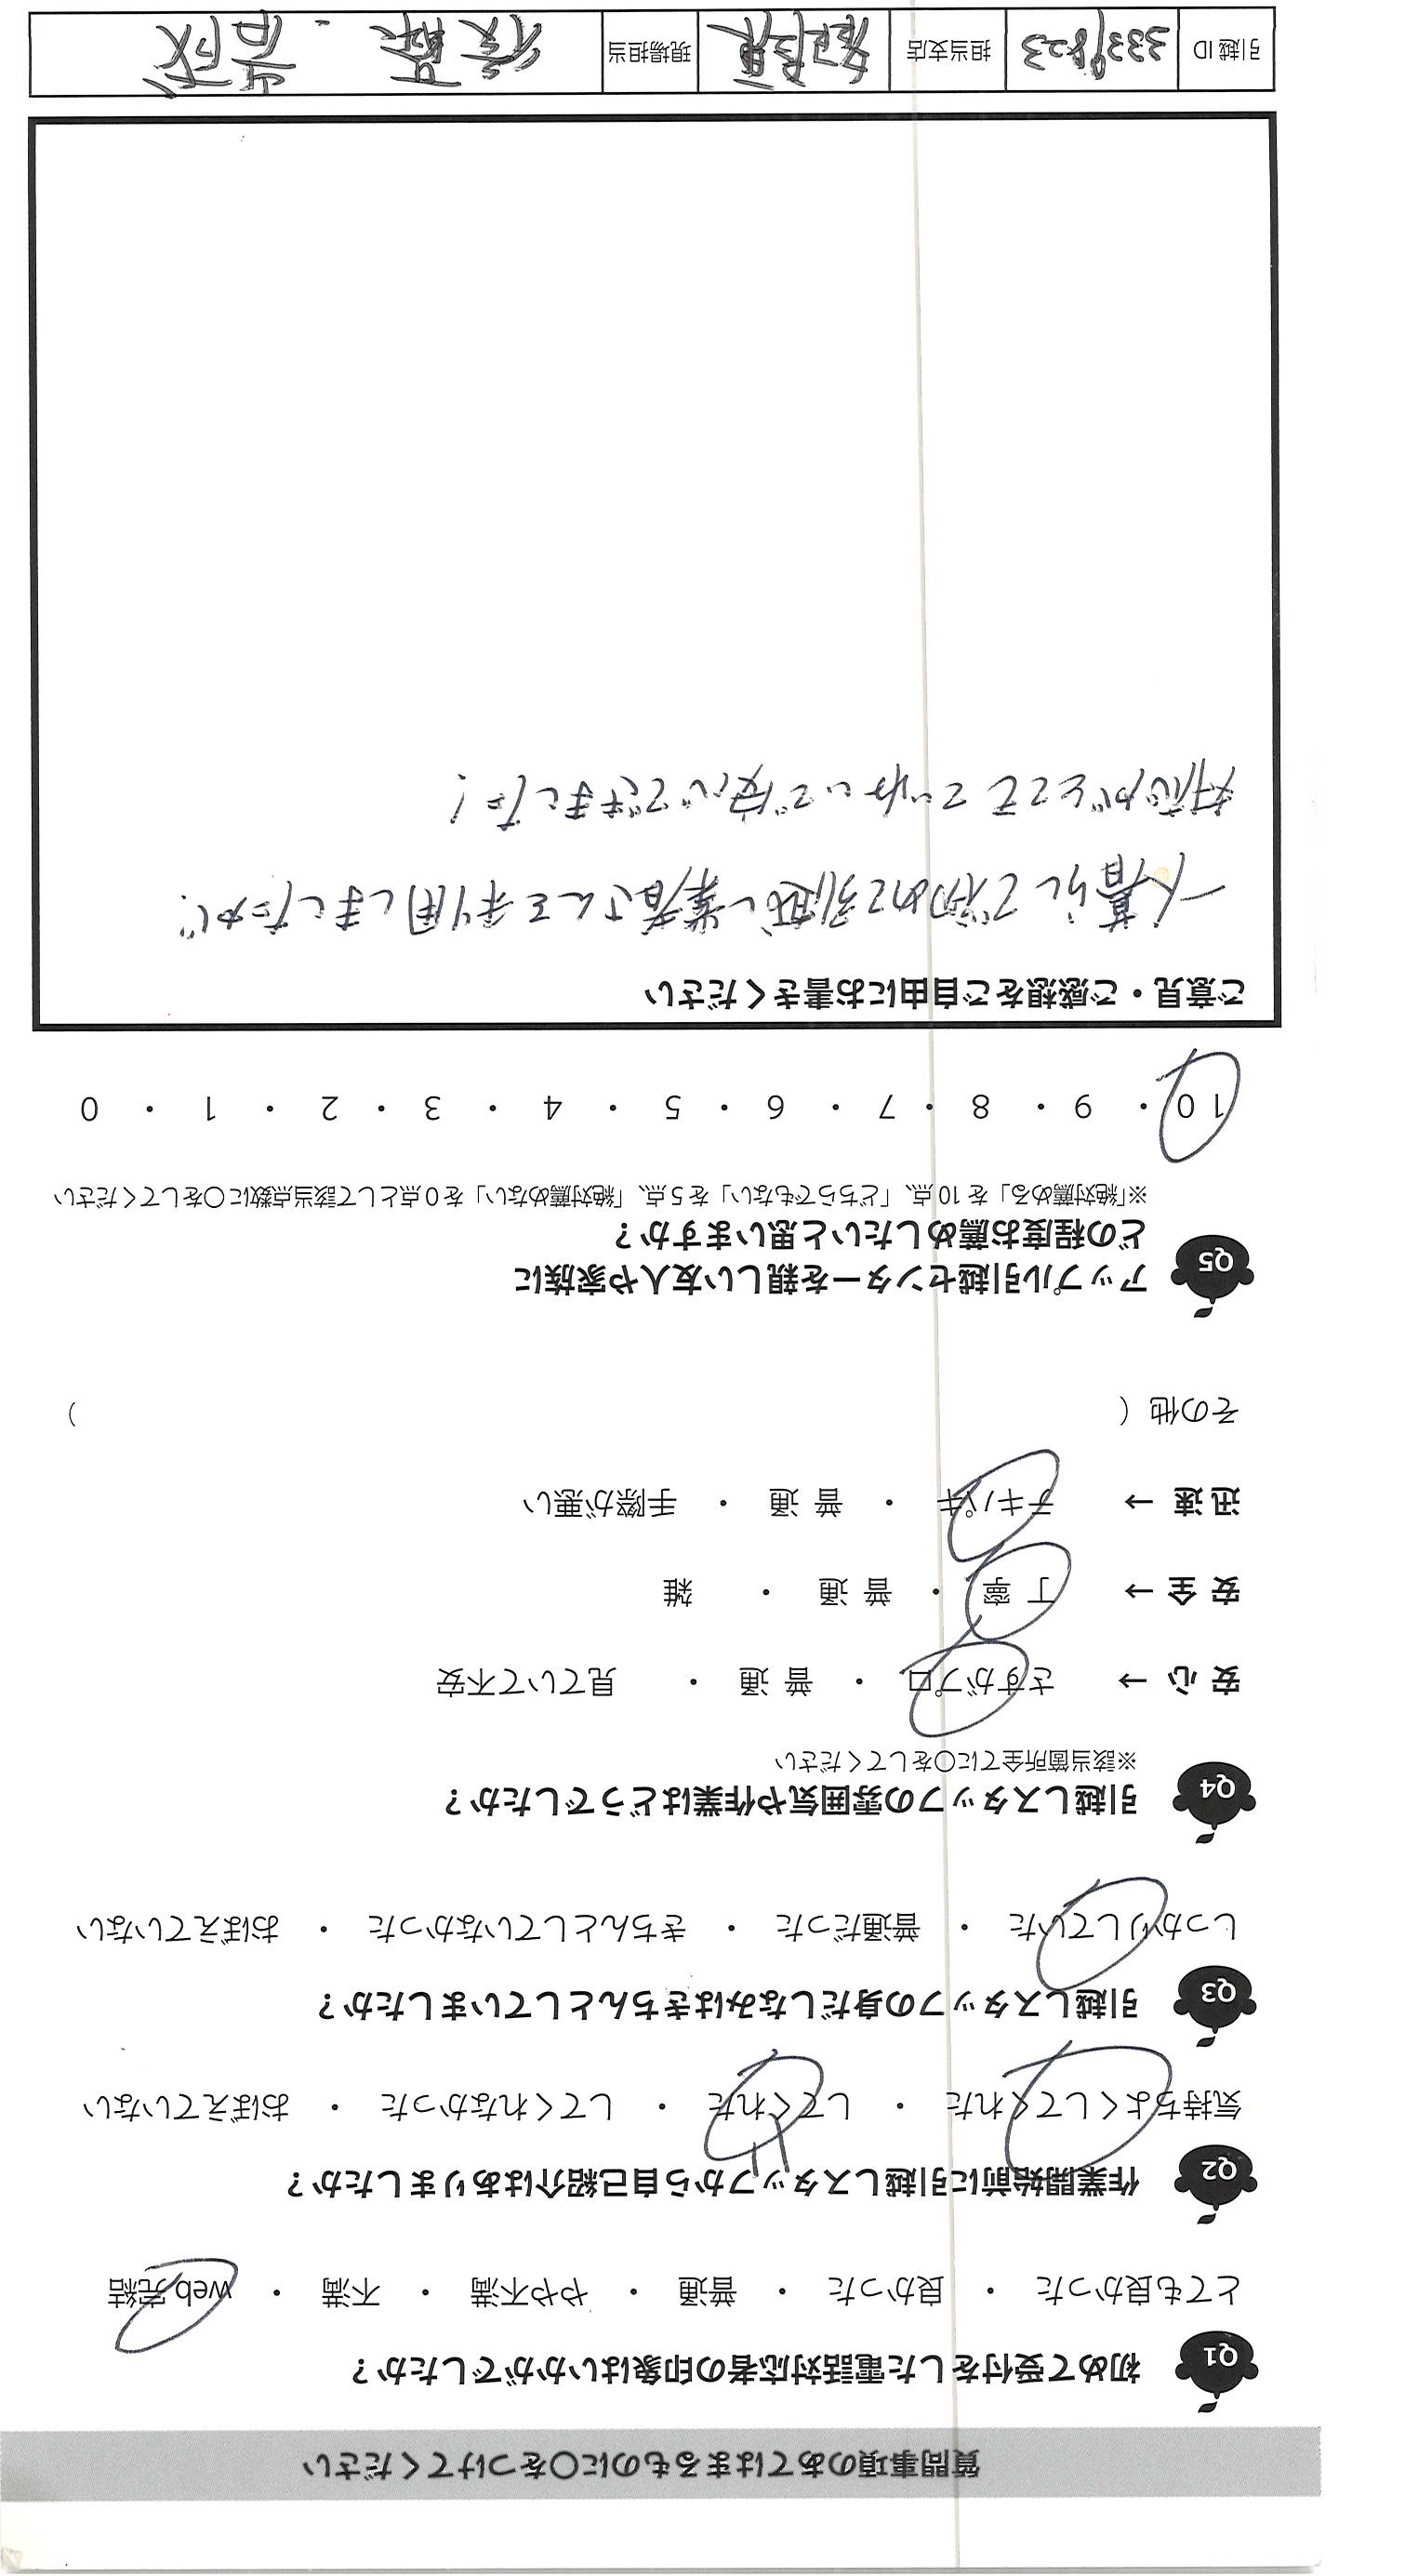 質問事項のあてはまるものに〇をつけてください
Q1 初めて受付をした電話対応者の印象はいかがでしたか？
とても良かった ・ 良かった ・ 普通 ・ やや不満 ・ 不満 ・ web完結
Q2 作業開始前に引越しスタッフから自己紹介はありましたか？
気持ちよくしてくれた ・ してくれた ・ してくれなかった ・ おぼえていない
Q3 引越しスタッフの身だしなみはきちんとしていましたか？
しっかりしていた ・ 普通だった ・ きちんとしていなかった ・ おぼえていない
Q4 引越しスタッフの雰囲気や作業はどうでしたか？
※該当箇所全てに〇をしてください
安心→ さすがプロ ・ 普通 ・ 見ていて不安
安全→ 丁寧 ・ 普通 ・ 雑
迅速→ テキパキ ・ 普通 ・ 手際が悪い
その他（ ）
Q5 アップル引越センターを親しい友人や家族に
どの程度お薦めしたいと思いますか？
※「絶対薦める」を10点、「どちらでもない」を5点、「絶対薦めない」を0点として該当点数に〇をしてください
10 ・ 9 ・ 8 ・ 7 ・ 6 ・ 5 ・ 4 ・ 3 ・ 2 ・ 1 ・ 0
ご意見・ご感想をご自由にお書きください
一人暮らしで初めて引越し業者さんを利用しましたが、
対応がとてもていねいで安心できました！
引越ID 3339823 担当支店 現場担当 後藤 ・